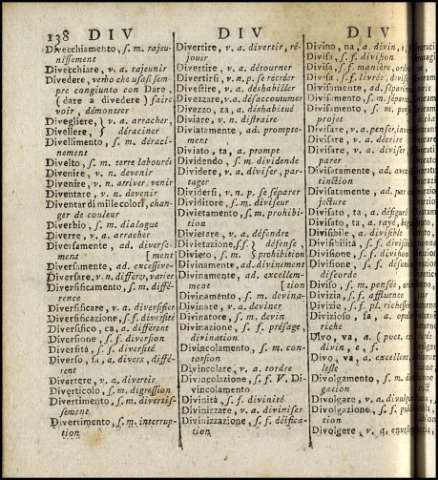 138 DIV
Divecchiamento, s. m. rajeu-
nissement
Divecchiare, v. a. rajeunir
Divedere, verbo che usasi sem-
pre congiunto con Dare,
(dare a divedere) faire
voir, démontrer
Divegliere, } v. a. arracher,
Divellere, } déraciner
Divellimento, s. m. déraci-
nement
Divelto, s. m. terre labourée
Divenire, v. n. devenir
Divenire, v. n. arriver, venir
Diventare, v. n. devenir
Diventar di mille colori, chan-
ger de couleur
Diverbio, s. m. dialogue
Diverre, v. a. arracher
Diversamente, ad. diverse-
ment [ment
Diversamente, ad. excessive-
Diversare, v. n. différer, varier
Diversificamento, s. m. diffé-
rence
Diversificare, v. a. diversifier
Diversificazione, s. f. diversité
Diversifico, ca, a. différent
Diversione, s. f. diversion
Diversità, s. f. diversité
Diverso, sa, a. divers, diffé-
rent
Divertere, v. a. divertir
Diverticolo, s. m. digression
Divertimento, s. m. divertis-
sement
Divertimento, s. m. interrup-
tion
DIV
Divertire, v. a. divertir, ré-
jouir
Divertire, v. a. détourner
Divertirsi, v. n. p. se récréer
Divestire, v. a. déshabiller
Divezzare, v. a. désaccoutumer
Divezzo, za, a. déshabitué
Diviare, v. n. distraire
Diviatamente, ad. prompte-
ment
Diviato, ta, a. prompt
Dividendo, s. m. dividende
Dividere, v. a. diviser, par-
tager
Dividersi, v. n. p. se séparer
Dividitore, s. m. diviseur
Divietamento, s. m. prohibi-
tion
Divietare, v. a. défendre
Divietazione, s. f. } défense,
Divieto, s. m. } prohibition
Divinamente, ad. divinement
Divinamente, ad. excellem-
ment [tion
Divinamento, s. m. devina-
Divinare, v. a. deviner
Divinatore, s. m. devin
Divinazione, s. f. présage,
divination
Divincolamento, s. m. con-
torsion
Divincolare, v. a. tordre
Divincolazione, s. f. V. Di-
vincolamento
Divinità, s. f. divinité
Divinizzare, v. a. diviniser
Divinizzazione, s. f. déifica-
tion
DIV
Divino, na, a. divin,
Divisa, s. f. division
Divisa, s. f. manière,
Divisa, s. f. livrée,
Divisamente, ad.
Divisamento, s. m.
projet
Divisare, v. a. penser,
Divisare, v. a. décrire
Divisare, v. a.
parer
Divisatamente, ad.
tinction
Divisatamente, ad. par
jecture
Divisato, ta, a.
Divisato, ta, a.
Divisibile, a. divisible
Divisibilità, s. f.
Divisione, s. f. division
Divisione, s. f.
discorde
Diviso, s. m. pensée,
Divizia, s. f. affluence
Divizie, s. f. pl. richesses
Divizioso, sa, a.
riche
Divo, va, a. (poet.
divin, e, f.
Divo, va, a. excellent,

Divolgamento, s. m.
gation
Divolgare, v. a.
Divolgazione, s. f.
tion
Divolgere, v. a.